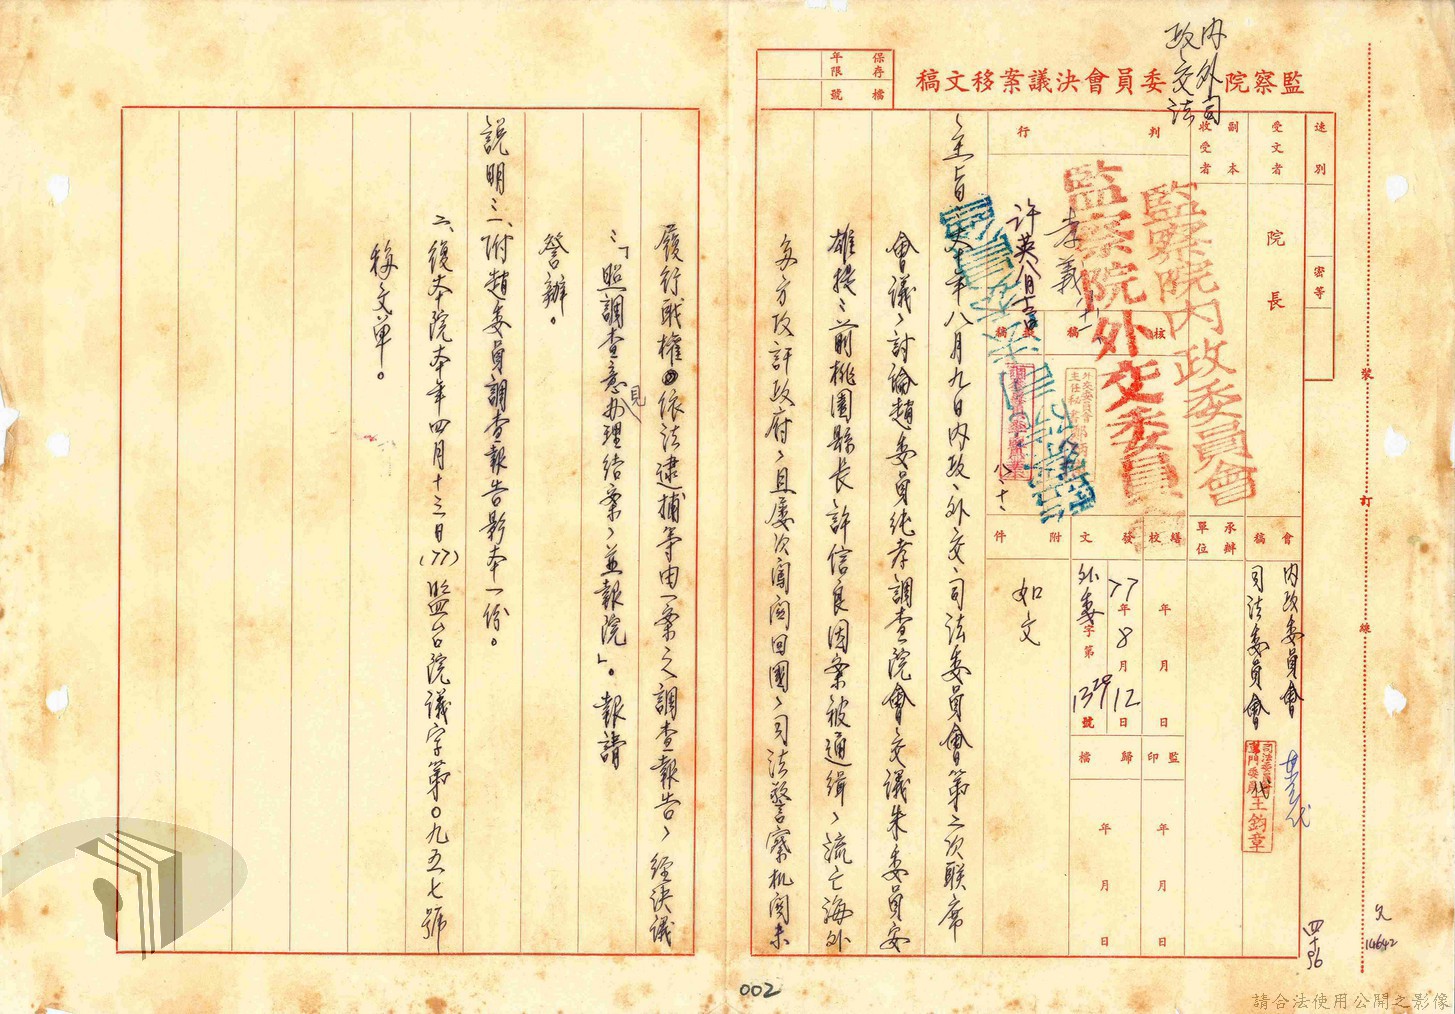 內外司
政交法
監察院 委員會決議案移文稿
保存年限
檔號
速別
密等
受文者
院長
副本收受者
判行
核稿
擬稿
孝義
許英 八月
監察院內政委員會
監察院外交委員會
會稿
內政委員會
司法委員會
司法委員會
專門委員
王鈞章
代
承辦單位
繕校
年 月 日
監印
年 月 日
發文
77年8月12日
外委字第1329號
歸檔
年 月 日
附件
如文
主旨、
年八月九日內政、外交、司法委員會第二次聯席
會議、討論趙委員純孝調查院會交議朱委員安
雄提:前桃園縣長許信良因案被通緝、流亡海外
多方攻訐政府、且屢次闖關回國、司法警察机關未
履行職權依法逮捕等由一案之調查報告、經決議
:「照調查意見办理結案、並報院」。報請
詧辦。
說明:一、附趙委員調查報告影本一份。
二、復本院本年四月十三日(77)監台院議字第0九五七號
移文單。
裝
訂
線
14642
002
請合法使用公開之影像